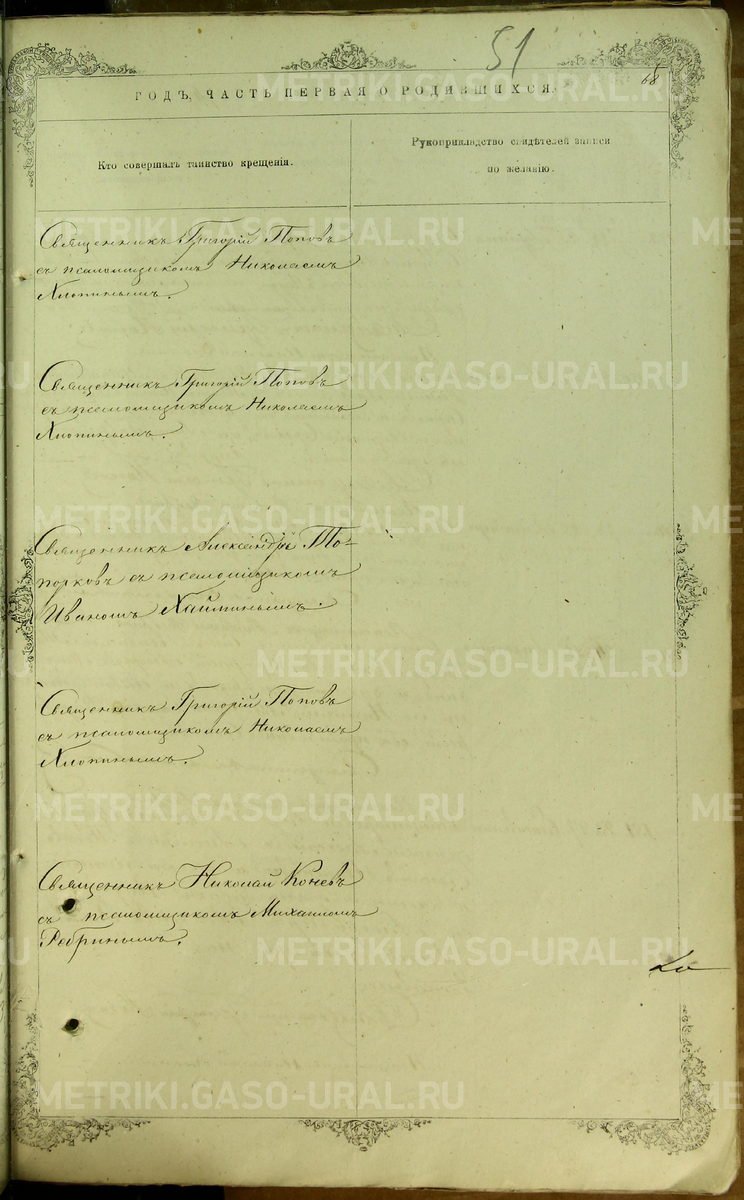 51
68
ГОДЪ, ЧАСТЬ ПЕРВАЯ О РОДИВШИХСЯ.
Кто совершалъ таинство крещенія.
Рукоприкладство свидѣтелей записи
по желанію.
Священникъ Григорій Поповъ
съ псаломщикомъ Николаемъ
Хлопинымъ.
Священникъ Григорій Поповъ
съ псаломщикомъ Николаемъ
Хлопинымъ.
Священникъ Александръ То-
порковъ съ псаломщикомъ
Иваномъ Хайминымъ.
Священникъ Григорій Поповъ
съ псаломщикомъ Николаемъ
Хлопинымъ.
Священникъ Николай Коневъ
съ псаломщикомъ Михаиломъ
METRIKI.GASO-URAL.RU